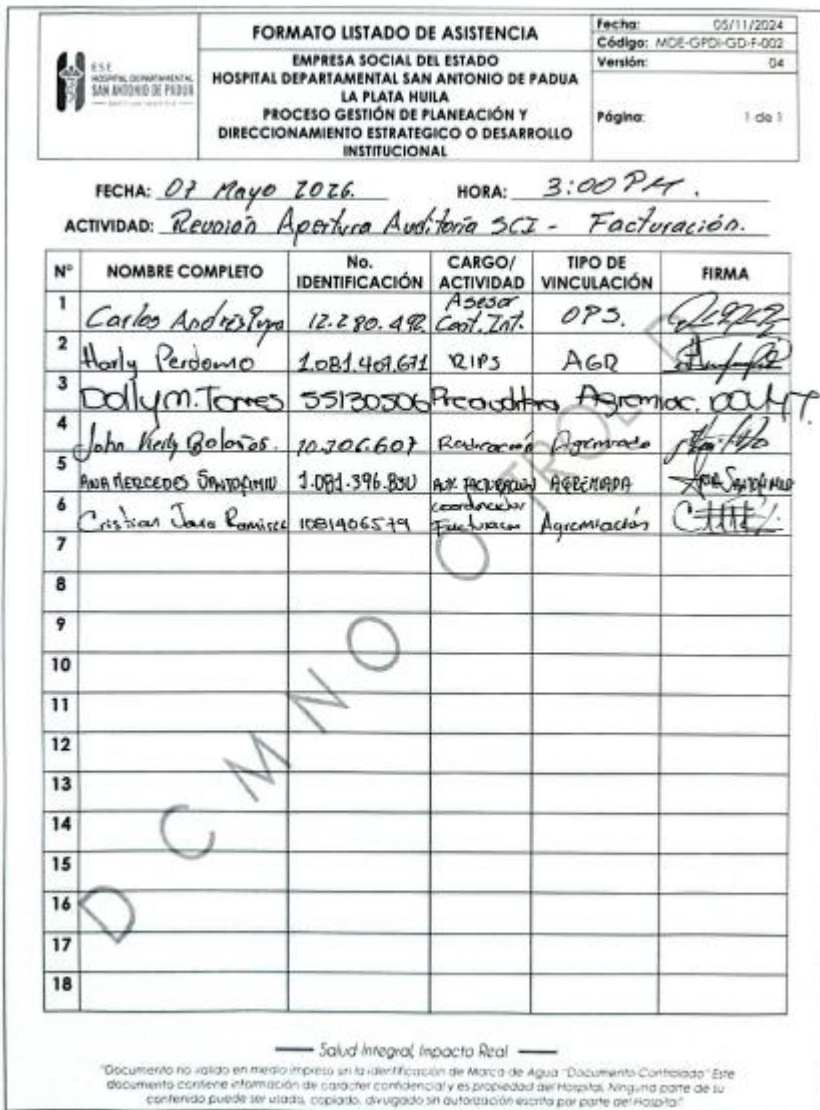 ESE
HOSPITAL DEPARTAMENTAL
SAN ANTONIO DE PADUA
FORMATO LISTADO DE ASISTENCIA
EMPRESA SOCIAL DEL ESTADO
HOSPITAL DEPARTAMENTAL SAN ANTONIO DE PADUA
LA PLATA HUILA
PROCESO GESTIÓN DE PLANEACIÓN Y
DIRECCIONAMIENTO ESTRATEGICO O DESARROLLO
INSTITUCIONAL
Fecha: 05/11/2024
Código: MDE-GPDI-GD-F-002
Versión: 04
Página: 1 de 1
FECHA: 07 Mayo 2026. HORA: 3:00 PM.
ACTIVIDAD: Reunión Apertura Auditoría SCI - Facturación.
N° NOMBRE COMPLETO No. IDENTIFICACIÓN CARGO/ ACTIVIDAD TIPO DE VINCULACIÓN FIRMA
1 Carlos Andrés 12.280.492 Asesor Cont. Int. OPS.
2 Harly Perdomo RIPS AGR
3 Dolly M. Torres 55130506 Preauditora Agremiac.
4 John Bolaños. 10.306.607 Radicación Agremiado
5 ANA MERCEDES SANTOFIMIO AUX. FACTURACION AGREMIADA
6 Cristian Jara Ramirez 1081406579 Coordinador Facturacion Agremiación
7
8
9
10
11
12
13
14
15
16
17
18
D C M N O O TROL D
Salud Integral, Impacto Real
"Documento no valido en medio impreso sin la identificación de Marca de Agua "Documento Controlado" Este
documento contiene información de carácter confidencial y es propiedad del Hospital. Ninguna parte de su
contenido puede ser usada, copiado, divulgado sin autorización escrita por parte del Hospital"